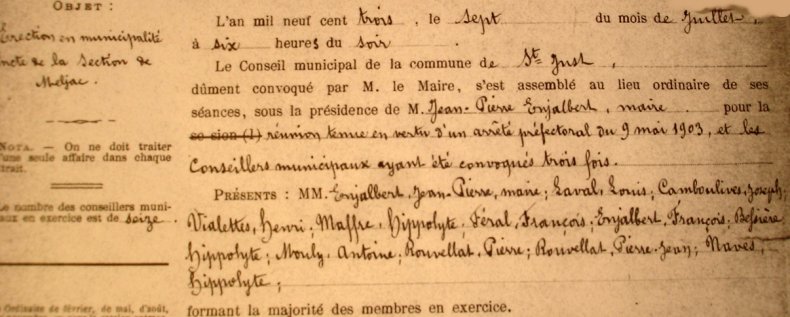 OBJET :
Érection en municipalité
de la section de
Meljac.
NOTA. — On ne doit traiter
seule affaire dans chaque
Le nombre des conseillers muni-
en exercice est de seize.
Ordinaire de février, de mai, d'août,
L'an mil neuf cent trois, le sept du mois de Juillet,
à six heures du soir.
Le Conseil municipal de la commune de St Just,
dûment convoqué par M. le Maire, s'est assemblé au lieu ordinaire de ses
séances, sous la présidence de M. Jean-Pierre Enjalbert, maire. pour la
se sion (1) réunion tenue en vertu d'un arrêté préfectoral du 9 mai 1903, et les
Conseillers municipaux ayant été convoqués trois fois.
PRÉSENTS : MM. Enjalbert, Jean-Pierre, maire; Laval, Louis; Camboulives, Joseph;
Vialettes, Henri; Maffre, Hippolyte; Féral, François; Enjalbert, François; Bessière
Hippolyte; Mouly, Antoine; Rouvellat, Pierre; Rouvellat, Pierre-Jean; Naves,
Hippolyte;
formant la majorité des membres en exercice.